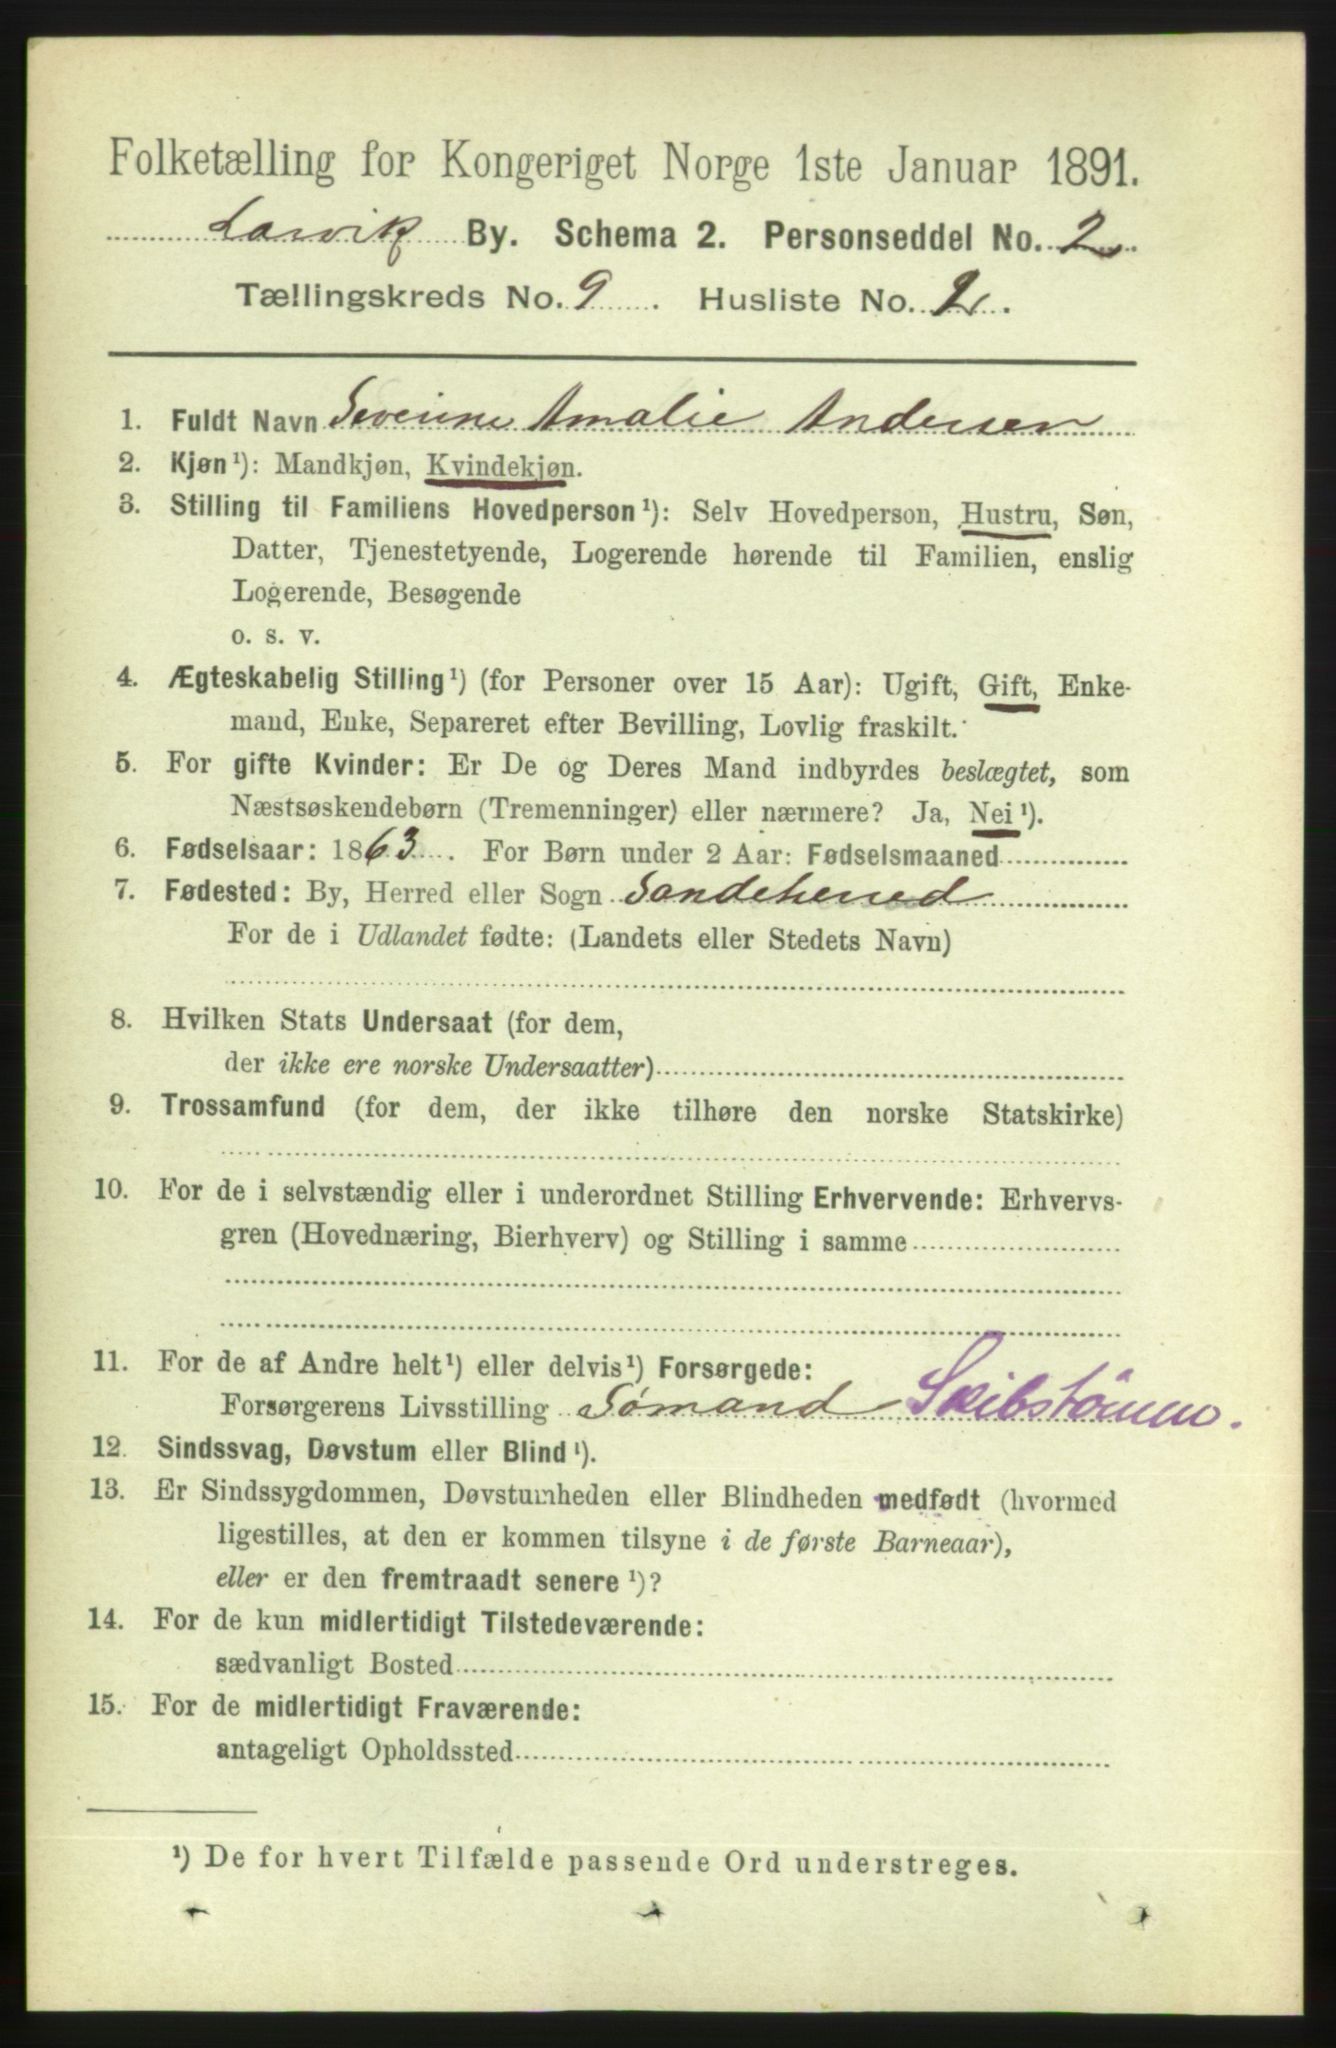 Folketælling for Kongeriget Norge 1ste Januar 1891.
Larvik By. Schema 2. Personseddel No. 2
Tællingskreds No. 9. Husliste No. 2.
1. Fuldt Navn Severine Amalie Andersen
2. Kjøn¹): Mandkjøn, Kvindekjøn.
3. Stilling til Familiens Hovedperson¹): Selv Hovedperson, Hustru, Søn,
Datter, Tjenestetyende, Logerende hørende til Familien, enslig
Logerende, Besøgende
o. s. v.
4. Ægteskabelig Stilling¹) (for Personer over 15 Aar): Ugift, Gift, Enke-
mand, Enke, Separeret efter Bevilling, Lovlig fraskilt.
5. For gifte Kvinder: Er De og Deres Mand indbyrdes beslægtet, som
Næstsøskendebørn (Tremenninger) eller nærmere? Ja, Nei¹).
6. Fødselsaar: 1863. For Børn under 2 Aar: Fødselsmaaned
7. Fødested: By, Herred eller Sogn Sandeherred
For de i Udlandet fødte: (Landets eller Stedets Navn)
8. Hvilken Stats Undersaat (for dem,
der ikke ere norske Undersaatter)
9. Trossamfund (for dem, der ikke tilhøre den norske Statskirke)
10. For de i selvstændig eller i underordnet Stilling Erhvervende: Erhvervs-
gren (Hovednæring, Bierhverv) og Stilling i samme
11. For de af Andre helt¹) eller delvis¹) Forsørgede:
Forsørgerens Livsstilling Sømand Skibstømm.
12. Sindssvag, Døvstum eller Blind¹).
13. Er Sindssygdommen, Døvstumheden eller Blindheden medfødt (hvormed
ligestilles, at den er kommen tilsyne i de første Barneaar),
eller er den fremtraadt senere¹)?
14. For de kun midlertidigt Tilstedeværende:
sædvanligt Bosted
15. For de midlertidigt Fraværende:
antageligt Opholdssted
¹) De for hvert Tilfælde passende Ord understreges.